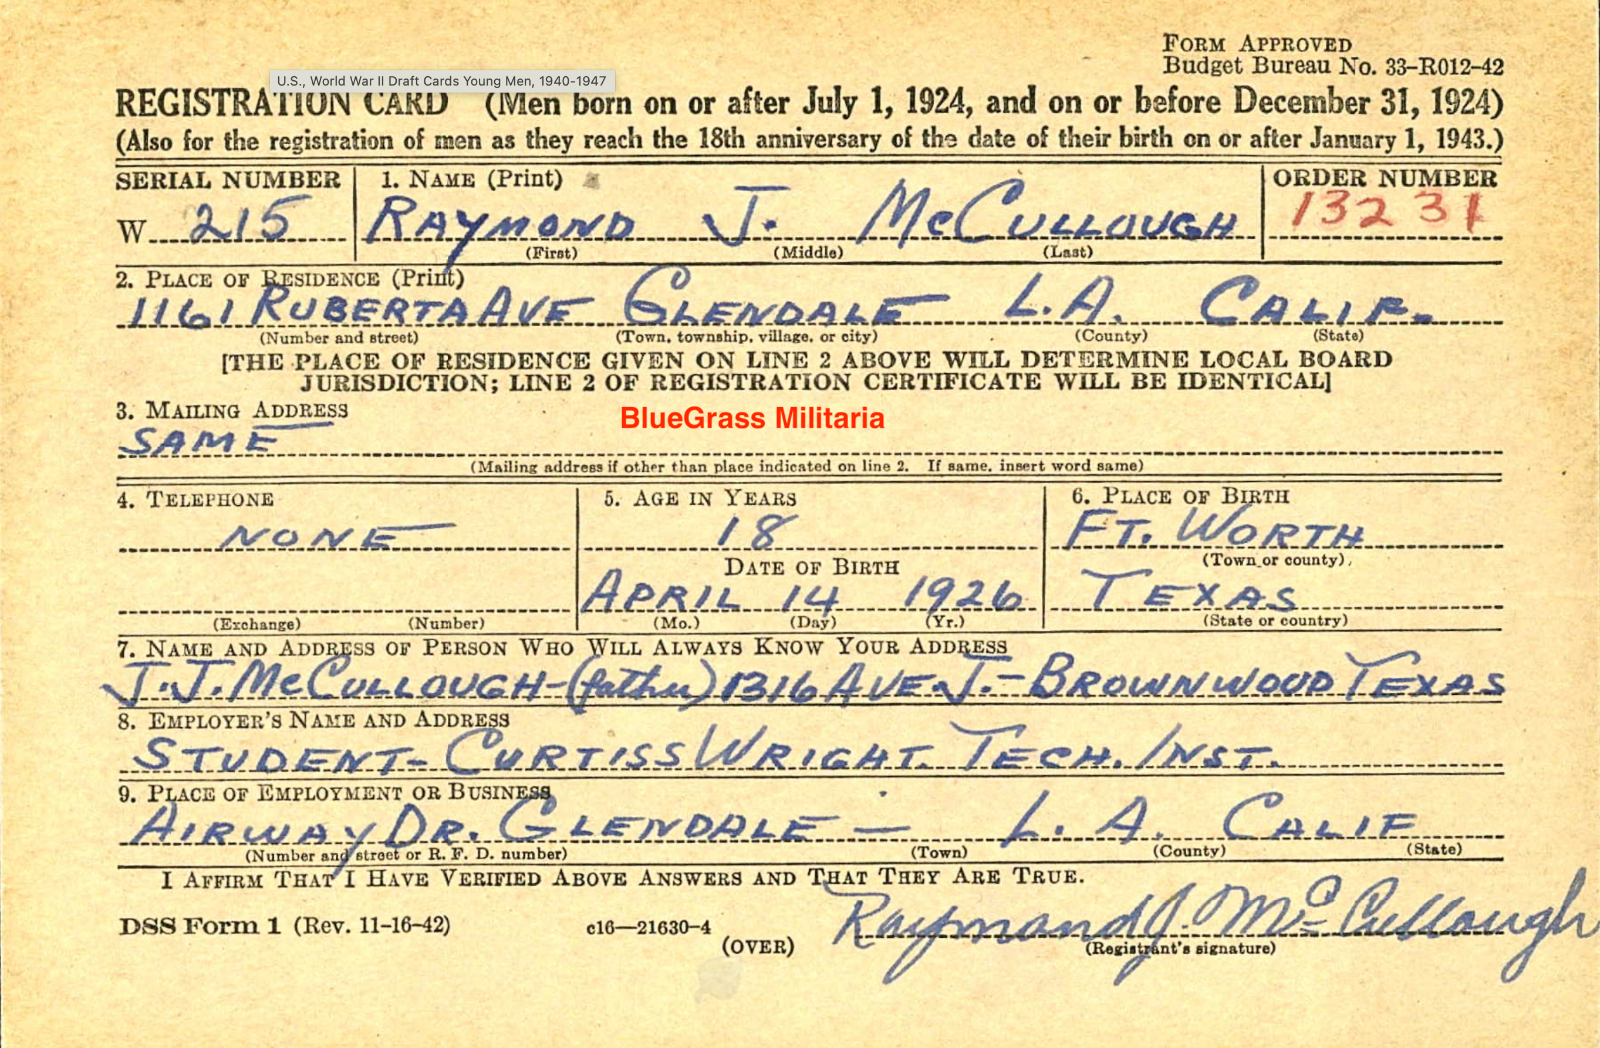 FORM APPROVED
Budget Bureau No. 33-R012-42
U.S., World War II Draft Cards Young Men, 1940-1947
REGISTRATION CARD (Men born on or after July 1, 1924, and on or before December 31, 1924)
(Also for the registration of men as they reach the 18th anniversary of the date of their birth on or after January 1, 1943.)
SERIAL NUMBER 1. NAME (Print) ORDER NUMBER
W 215 RAYMOND J. McCULLOUGH 13231
(First) (Middle) (Last)
2. PLACE OF RESIDENCE (Print)
1161 RUBERTA AVE GLENDALE L.A. CALIF.
(Number and street) (Town, township, village, or city) (County) (State)
[THE PLACE OF RESIDENCE GIVEN ON LINE 2 ABOVE WILL DETERMINE LOCAL BOARD
JURISDICTION; LINE 2 OF REGISTRATION CERTIFICATE WILL BE IDENTICAL]
3. MAILING ADDRESS
BlueGrass Militaria
SAME
(Mailing address if other than place indicated on line 2. If same, insert word same)
4. TELEPHONE 5. AGE IN YEARS 6. PLACE OF BIRTH
NONE 18 FT. WORTH
(Town or county)
DATE OF BIRTH
APRIL 14 1926 TEXAS
(Exchange) (Number) (Mo.) (Day) (Yr.) (State or country)
7. NAME AND ADDRESS OF PERSON WHO WILL ALWAYS KNOW YOUR ADDRESS
J.J. McCULLOUGH-(father) 1316 AVE. J.- BROWNWOOD TEXAS
8. EMPLOYER'S NAME AND ADDRESS
STUDENT- CURTISS WRIGHT TECH. INST.
9. PLACE OF EMPLOYMENT OR BUSINESS
AIRWAY DR. GLENDALE — L. A. CALIF
(Number and street or R. F. D. number) (Town) (County) (State)
I AFFIRM THAT I HAVE VERIFIED ABOVE ANSWERS AND THAT THEY ARE TRUE.
DSS Form 1 (Rev. 11-16-42) c16—21630-4 Raymond J. McCullough
(OVER) (Registrant's signature)